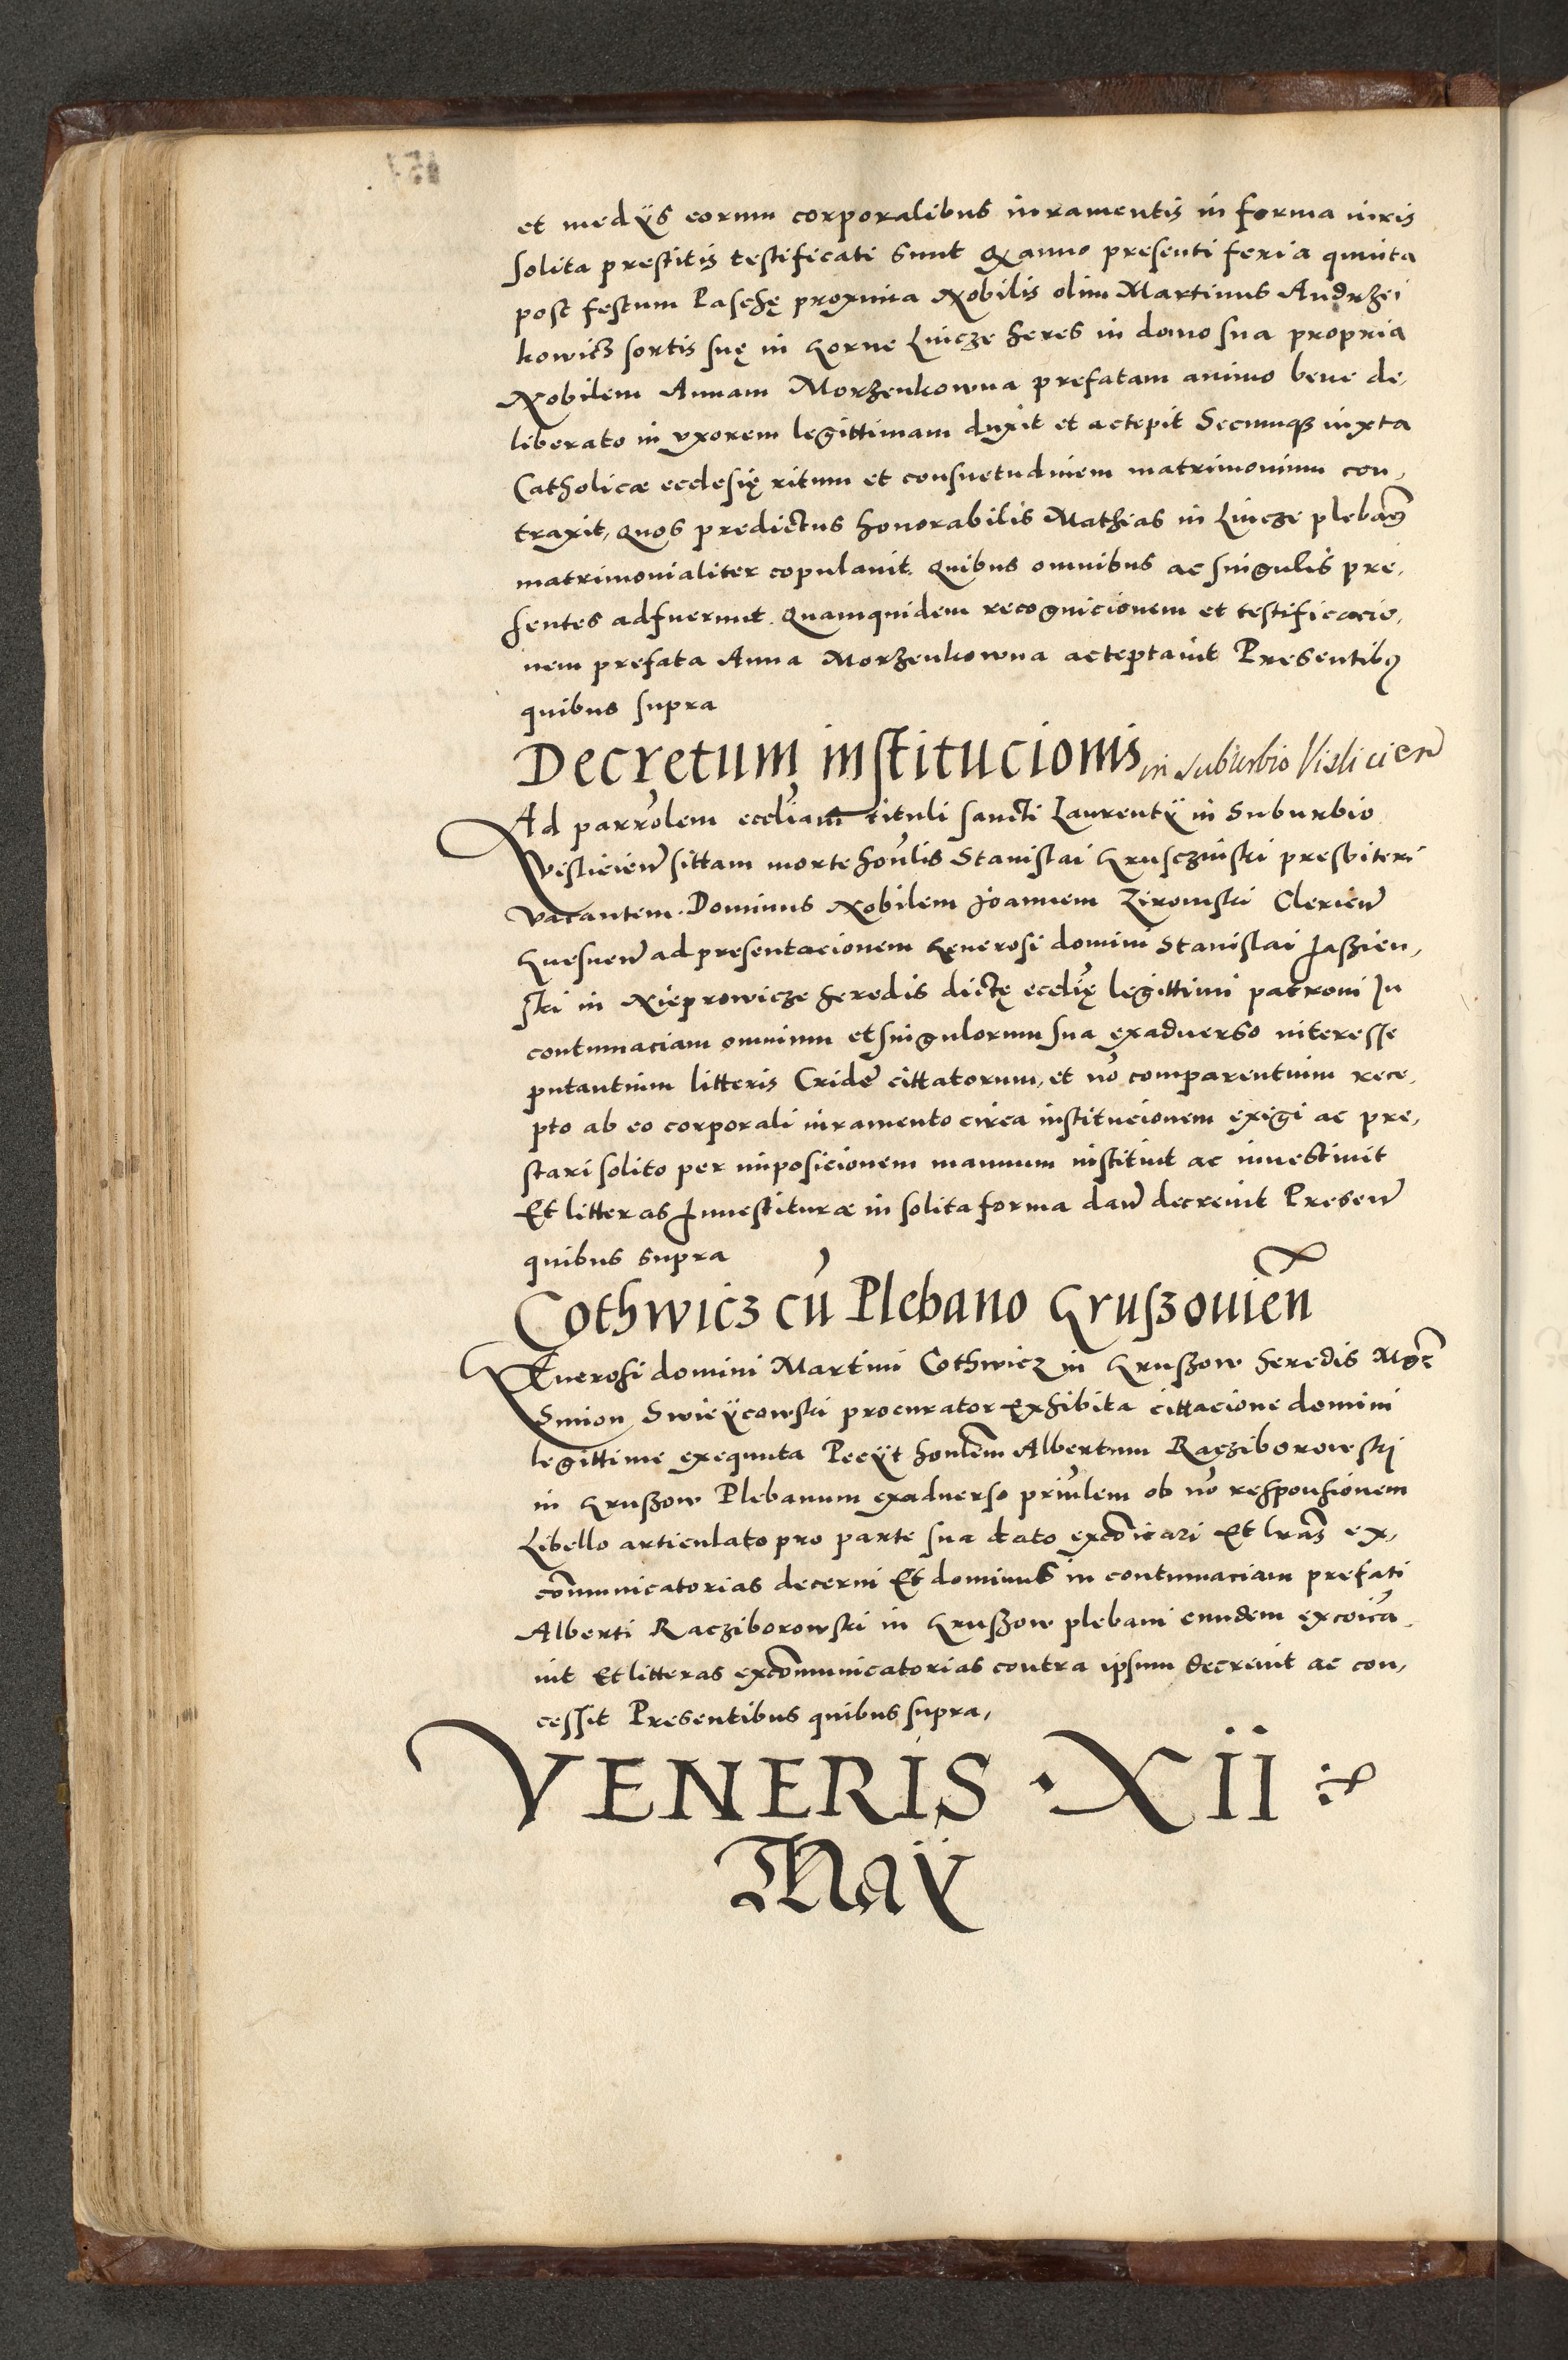 et medijs eorum corporalibus iuramentis in forma iuris
solita prestitis testificati sunt Qx anno presenti feria quinta
post festum Paschę proxima Nobilis olim Martinus Andrzei
kowicz sortis suę in Gorne Luicze heres in domo sua propria
Nobilem Annam Morzenkowna prefatam animo bene de,
liberato in vxorem legittimam duxit et acteptit Secumque iuxta
Catholicæ ecclesię ritum et consuetudinem matrimonium con,
traxit, Quos predictus honorabilis Mathias in Luicze plebanus
matrimonialiter copulauit. Quibus omnibus ac singulis pre,
sentes adfuerunt. Quamquidem recognicionem et testificacio,
nem prefata Anna Morzenkowna acteptauit Presentibus
quibus supra
Decretum institucionis in suburbio Vislicien
Ad parrolem eccliam tituli sancti Laurentij in Suburbio
Vislicien sittam morte honlis Stanislai Grusczinski presbiteri
vacantem. Dominus Nobilem Joannem Zirowski Clericum
Gnesnen ad presentacionem Generosi domini Stanislai Jaszien,
ski in Nieprowicze heredis dictę ecclię legittimi patroni In
contumaciam omnium et singulorum sua exaduerso interesse
putantium litteris Cride cittatorum, et no comparentium rece,
pto ab eo corporali iuramento circa institucionem exigi ac pre,
stari solito per imposicionem manuum instituit ac inuestiuit
Et litteras Inuestituræ in solita forma dan decreuit Presen
quibus supra
Cothwicz cu Plebano Gruszouien
Generosi domini Martini Cothwicz in Gruszow heredis Mgr
Simon Swieÿcowski procurator Exhibita cittacione domini
legittime exequuta Pecijt honlem Albertum Racziborowski
in Gruszow Plebanum exaduerso prinlem ob no responsionem
Libello articulato pro parte sua dato excoicari Et lras ex,
communicatorias decerni Et dominus in contumaciam prefati
Alberti Racziborowski in Gruszow plebani eundem excoica
uit Et litteras excommunicatorias contra ipsum decreuit ac con,
cessit Presentibus quibus supra,
VENERIS · XII
Maÿ